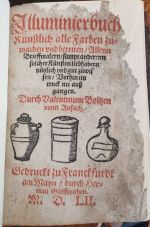 Illuminierbuch
Künstlich alle Farben zu-
machen vnd bereiten / Allen
Brieffmalern / sampt andern
solcher Künsten liebhabern
nützlich vnd gut zuwis-
sen / Vorhin im
truck nie auß
gangen.
Durch Valentinum Boltzen
vonn Rufach.
Gedruckt zu Franckfurdt
am Mayn / durch Her-
man Gülfferichen.
M. D. LII.